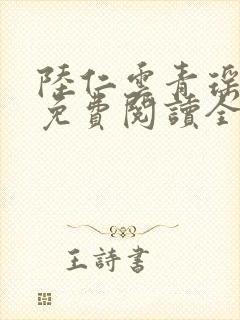 陸仁雲青瑤
免費閱讀全
王詩書